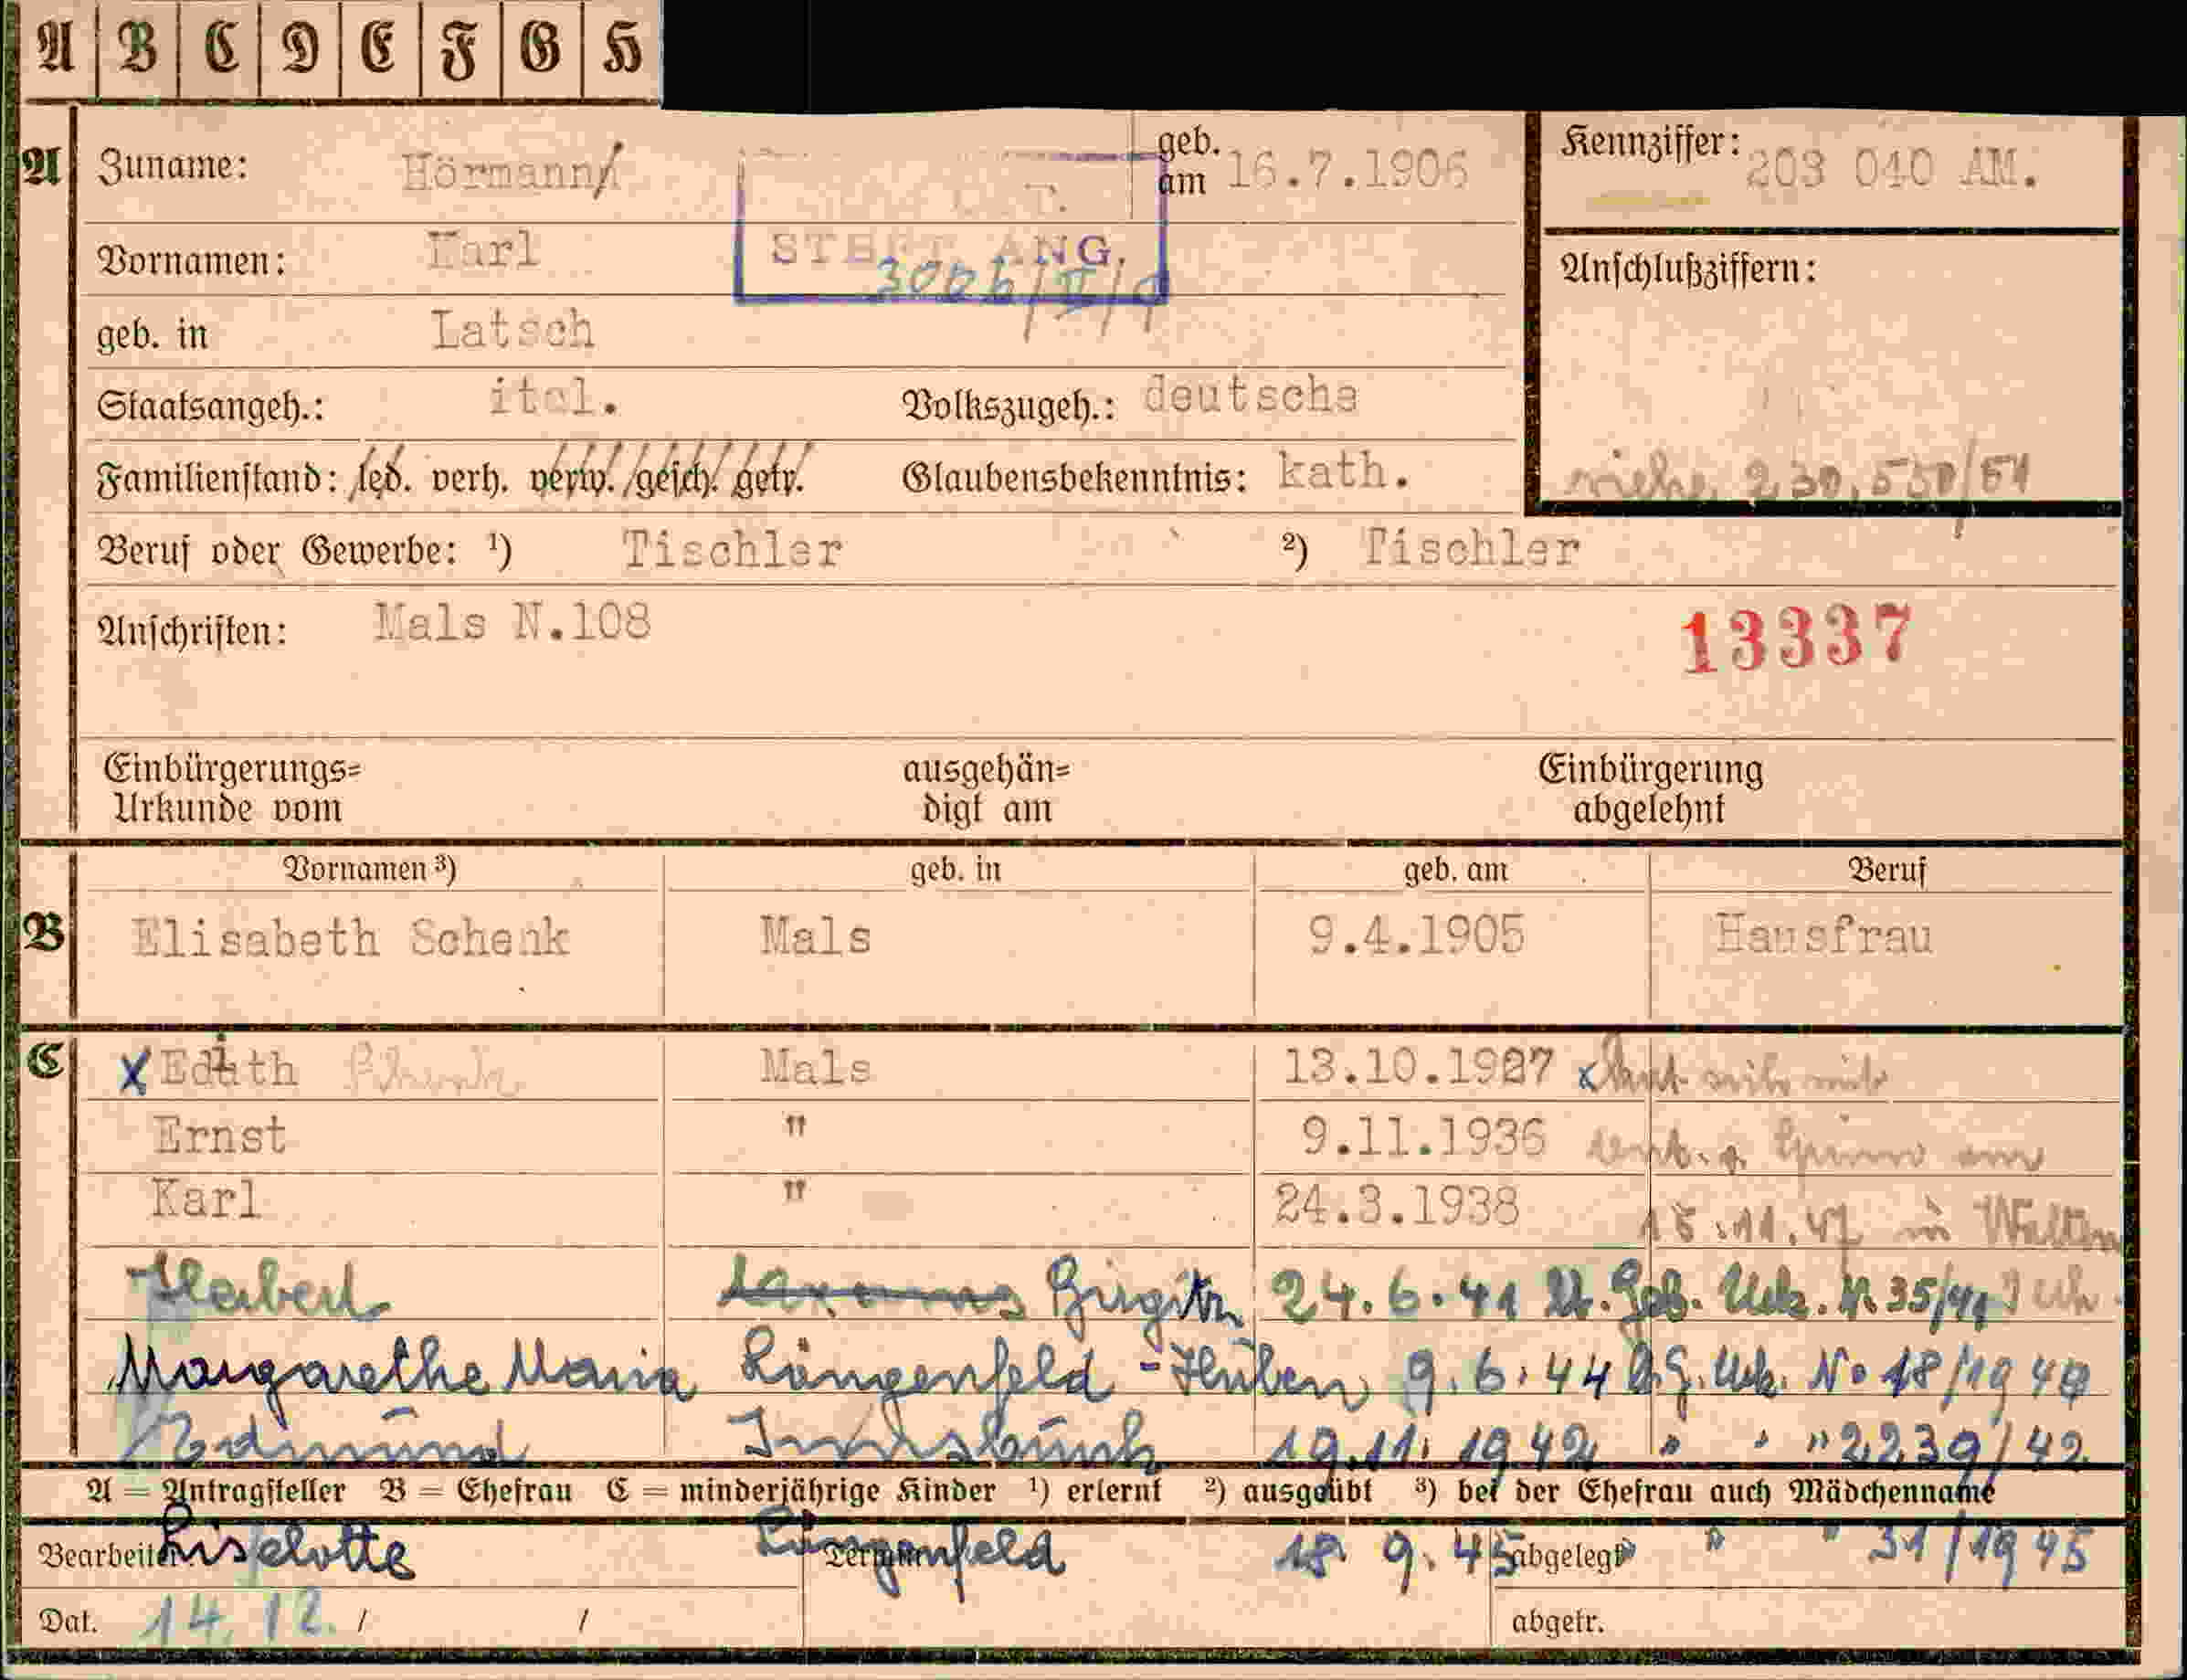 A B C D E F G H
A Zuname: Hörmann geb. am 16.7.1906 Kennziffer: 203 040 AM.
Vornamen: Karl ANG. Anschlußziffern:
geb. in Latsch
Staatsangeh.: ital. Volkszugeh.: deutsche
Familienstand: led. verh. verw. gesch. getr. Glaubensbekenntnis: kath. siehe 230,550/51
Beruf oder Gewerbe: ¹) Tischler ²) Tischler
Anschriften: Mals N.108 13337
Einbürgerungs= ausgehän= Einbürgerung
Urkunde vom digt am abgelehnt
Vornamen ³) geb. in geb. am Beruf
B Elisabeth Schenk Mals 9.4.1905 Hausfrau
C x Edith Schenk Mals 13.10.1927 x
Ernst " 9.11.1936
Karl " 24.3.1938 15.11.47 in
Herbert 24.6.41 Geb. Urk. Nr. 35/41
Margarethe Maria Längenfeld - Huben 9.6.44 G. Urk. No 18/1944
Edmund Innsbruck 19.11.1942 " " " 2239/42
A = Antragsteller B = Ehefrau C = minderjährige Kinder ¹) erlernt ²) ausgeübt ³) bei der Ehefrau auch Mädchenname
Bearbeiter Liselotte Termin Längenfeld 18.9.45 abgelegt " " " 31/1945
Dat. 14.12. / / abgetr.